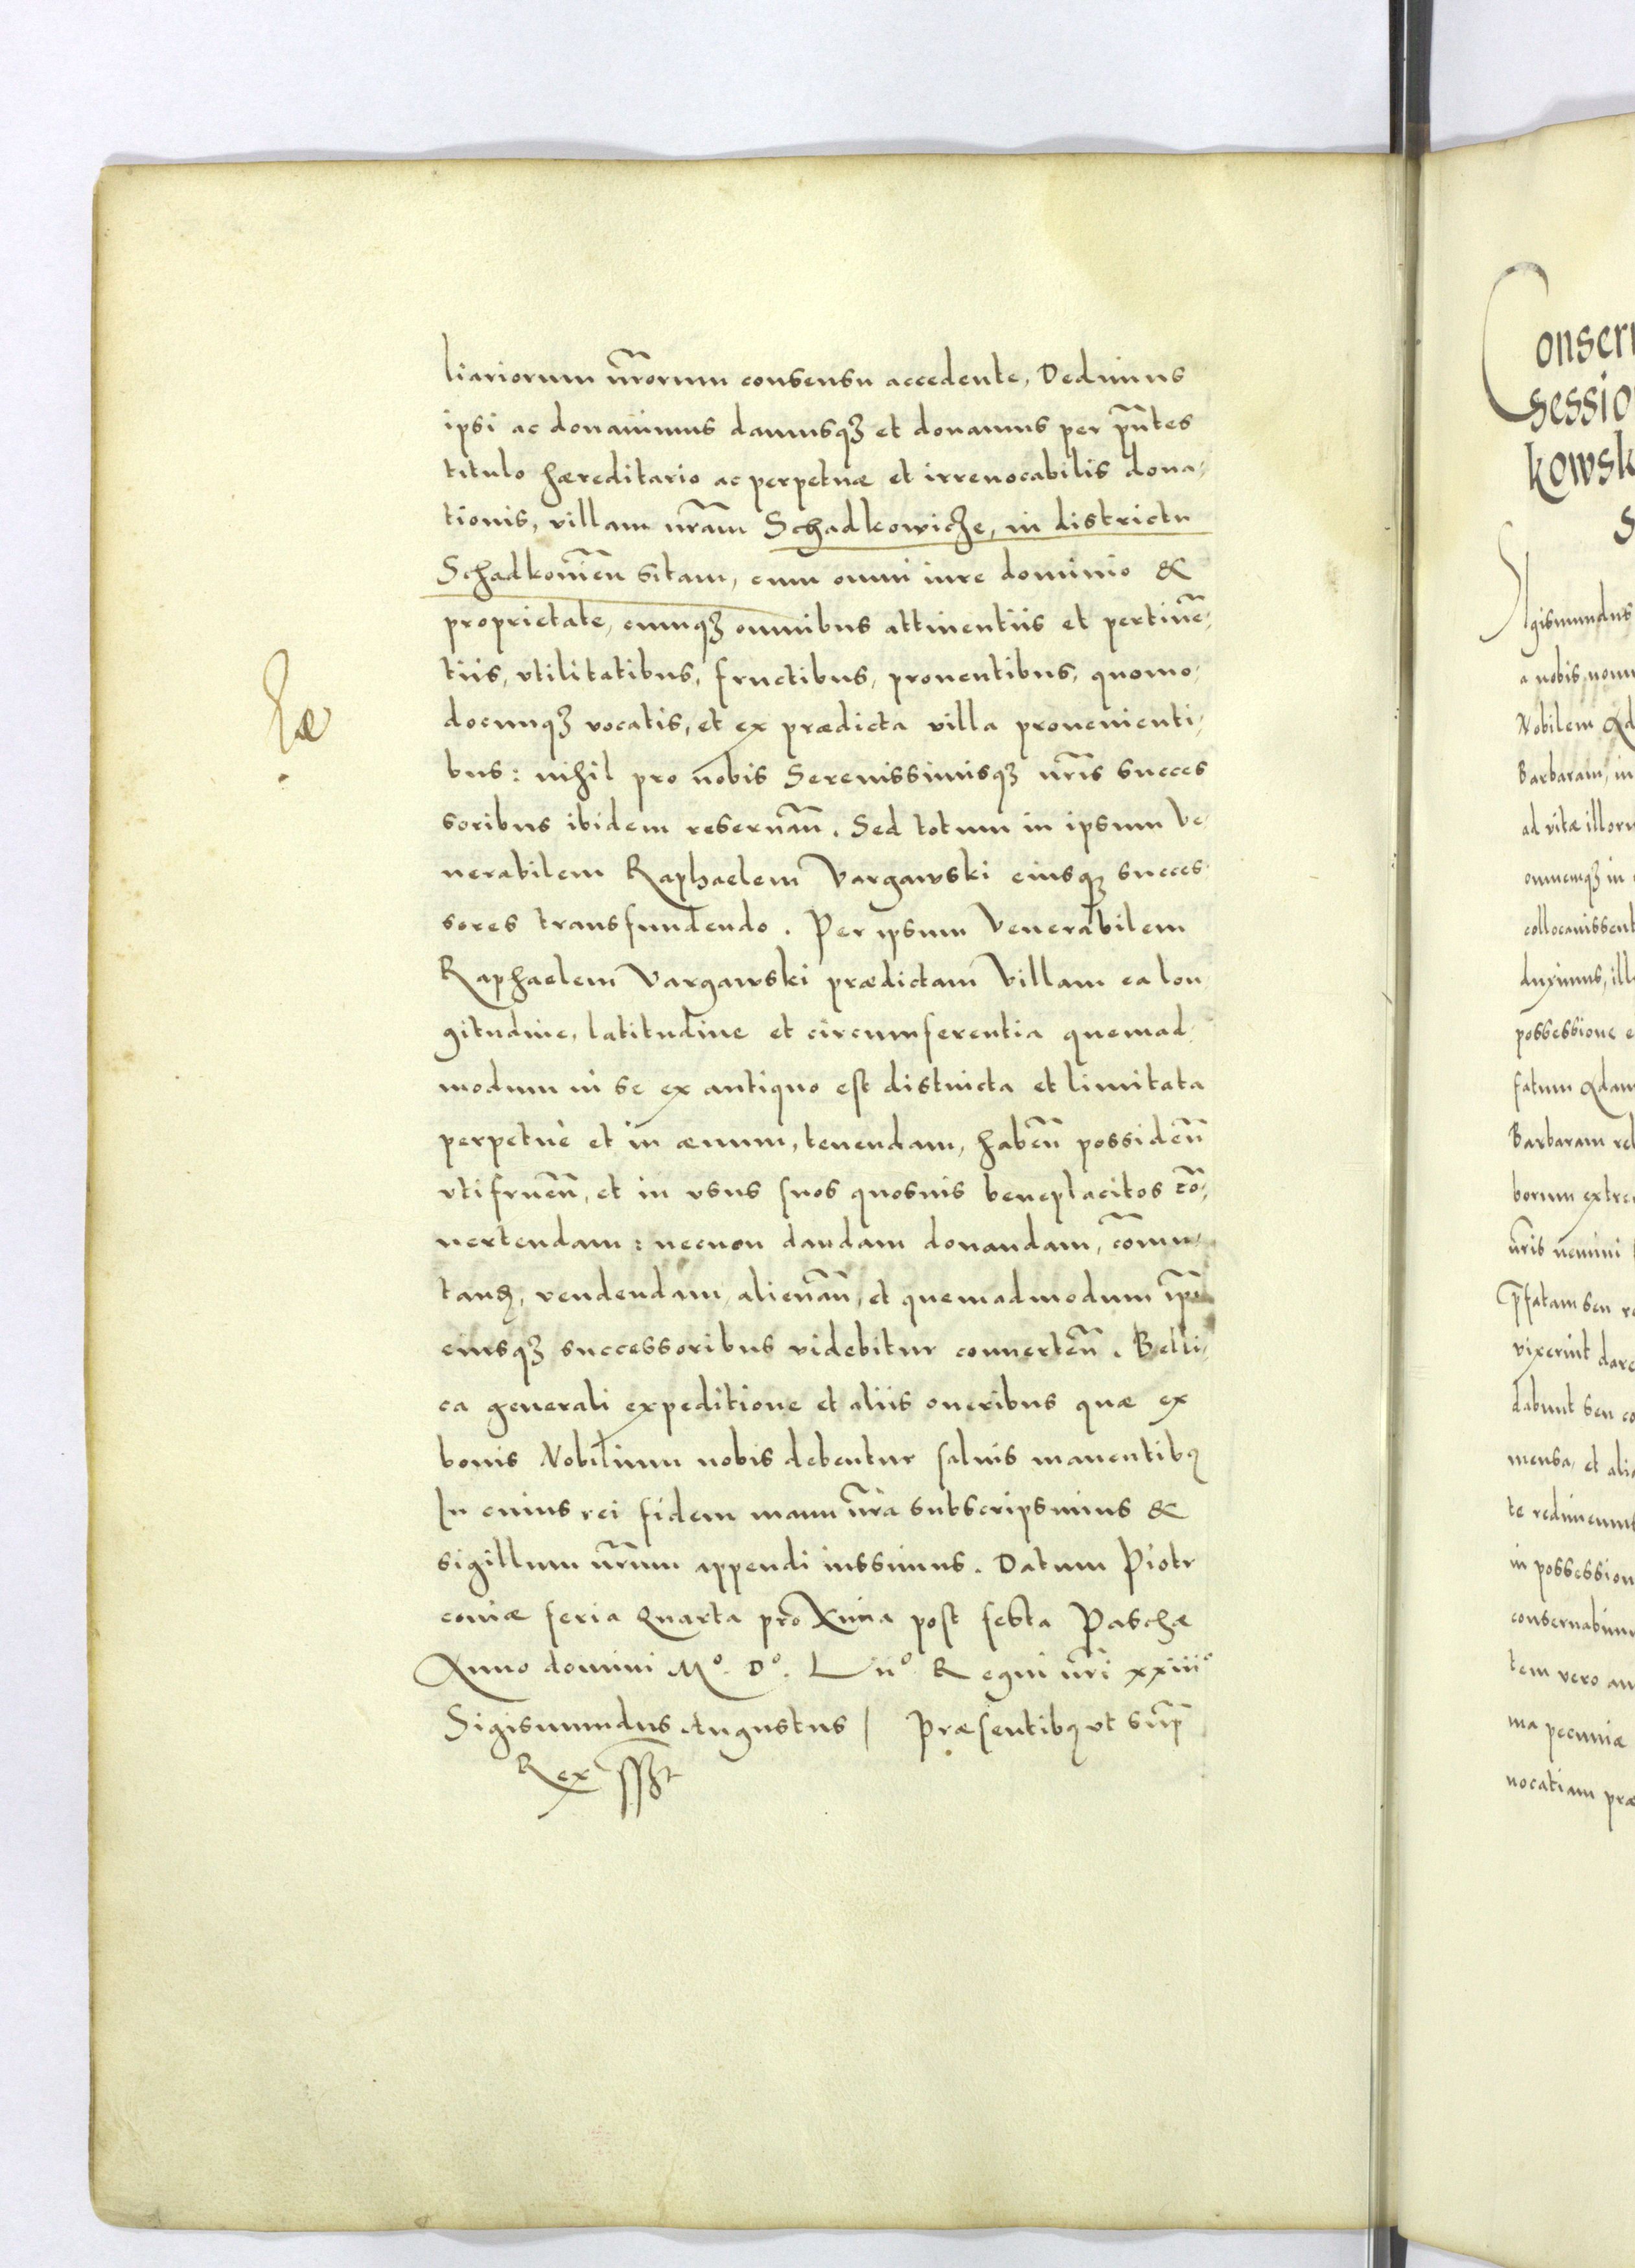 liariorum nr̃orum consensu accedente, Dedimus
ipsi ac donauimus damusqȝ et donamus per pñtes
titulo hæreditario ac perpetuæ et irreuocabilis dona,
tionis, villam nr̃am Schadkowicze, in districtu
Schadkouieñ sitam, cum omni iure dominio &
proprietate, cumqȝ omnibus attinentiis et pertinẽ,
tiis, vtilitatibus, fructibus, prouentibus, quomo,
documqȝ vocatis, et ex prædicta villa prouenienti,
bus: nihil pro nobis Serenissimisqȝ nr̃is succes
soribus ibidem reseruañ. Sed totum in ipsum Ve,
nerabilem Raphaelem Vargawski eiusqȝ succes,
sores transfundendo. Per ipsum Venerabilem
Raphaelem Vargawski prædictam Villam ea lon
gitudine, latitudine et circumferentia quemad,
modum in se ex antiquo est distincta et limitata
perpetuè et in æuum, tenendam, habeñ possideñ
vtifrueñ, et in vsus suos quosuis beneplacitos cõ,
uertendam: necnon dandam donandam, cõmu,
tanđ, vendendam, alienañ, et quemadmodum ip̃i
eiusqȝ successoribus videbitur conuerteñ. Belli,
ca generali expeditione et aliis oneribus quæ ex
bonis Nobilium nobis debentur saluis manentibꝰ
In cuius rei fidem manu nr̃a subscripsimus &
sigillum nr̃um appendi iussimus. Datum Piotr
couiæ feria Quarta proxima post festa Paschæ
Anno domini Mº. Dº. Lijº Regni nr̃i xxiiiº
Sigismundus Augustus | Præsentibꝰ vt supͣ
Rex sszt
onseru
sessio
kowsk
gismundus
a nobis nonn
Nobilem Ad
Barbaram, in
ad vitæ illoru
omnemqȝ in
collocauissent
duximus, ill
possessione e
fatum Adam
Barbaram rel
borum extre
nr̃is nemini
p̃fatam seu
vixerint dare
dabunt seu co
mensa, et ali
te redimemus
in possession
conseruabimu
tem vero an
ma pecuniæ
uocatiam præ